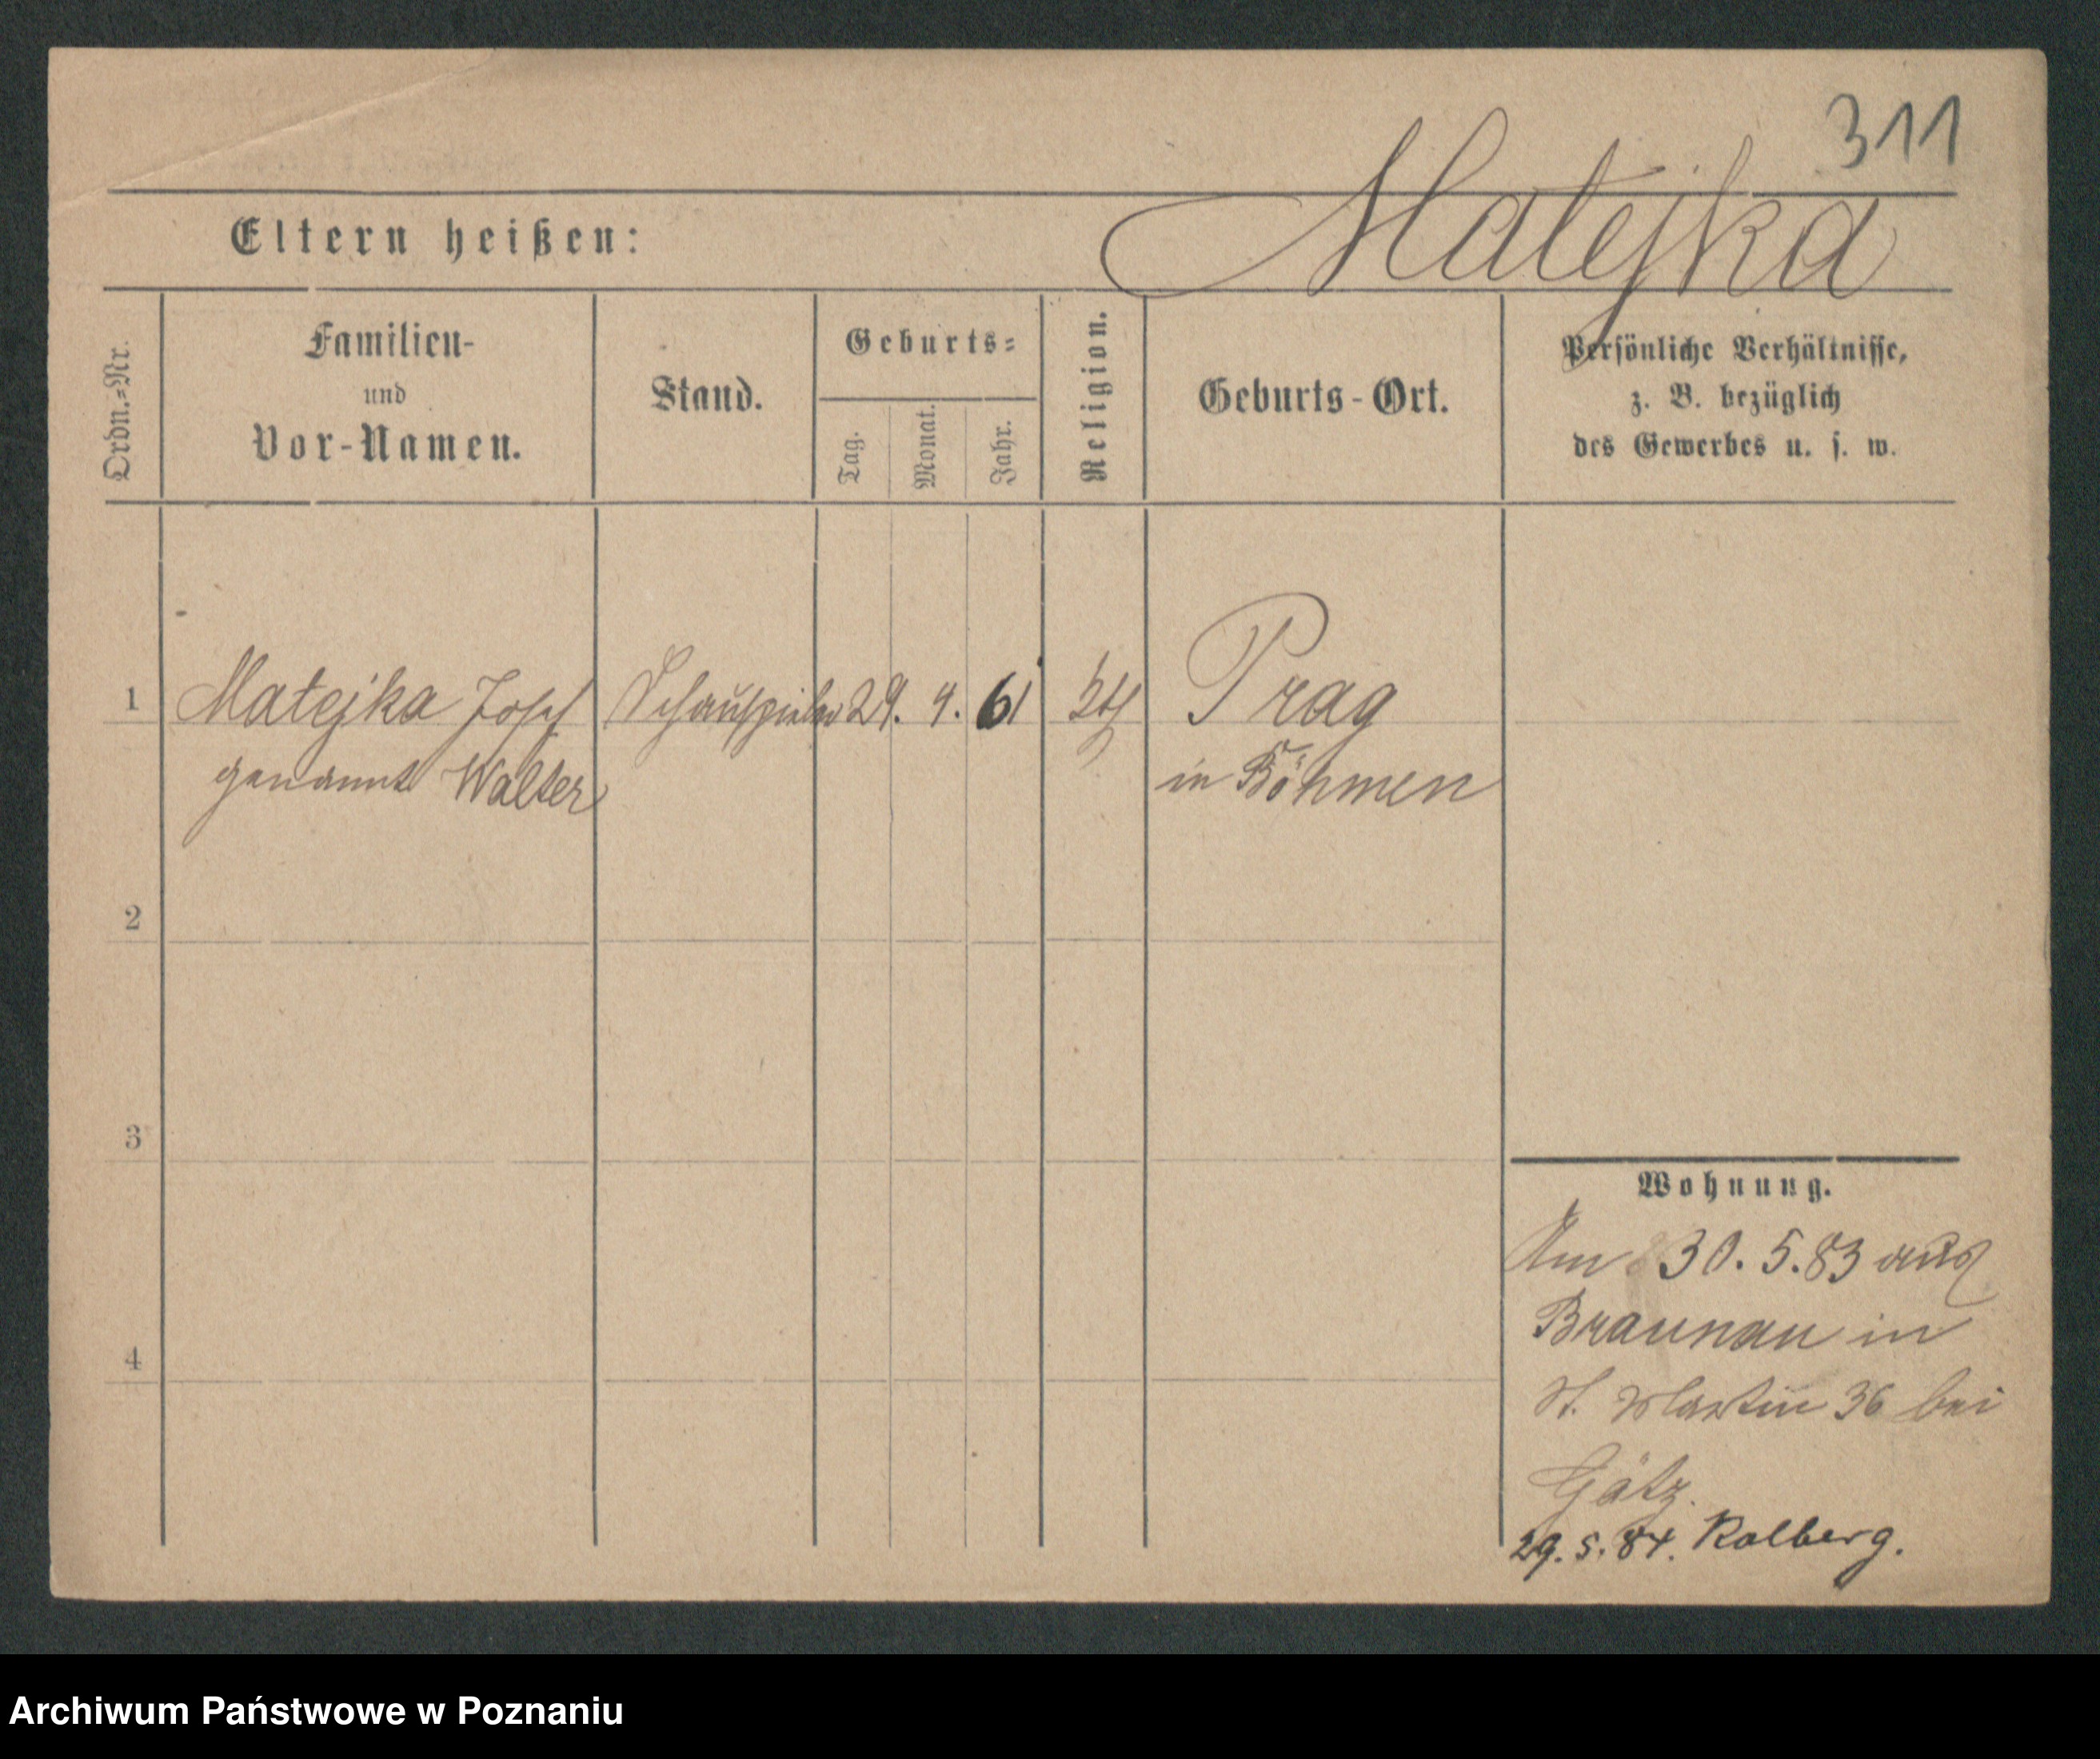 311
Matejka
Eltern heißen:
Ordn.-Nr.
Familien-
und
Vor-Namen.
Stand.
Geburts-
Tag.
Monat.
Jahr.
Religion.
Geburts-Ort.
Persönliche Verhältnisse,
z. B. bezüglich
des Gewerbes u. s. w.
1 Matejka Josef Schauspieler 29. 4. 61 Prag
genannt Walter in Böhmen
2
3
4
Wohnung.
Am 30. 5. 83 aus
Braunau in
St. Martin 36 bei
Götz.
29. 5. 84. Kolberg.
Archiwum Państwowe w Poznaniu